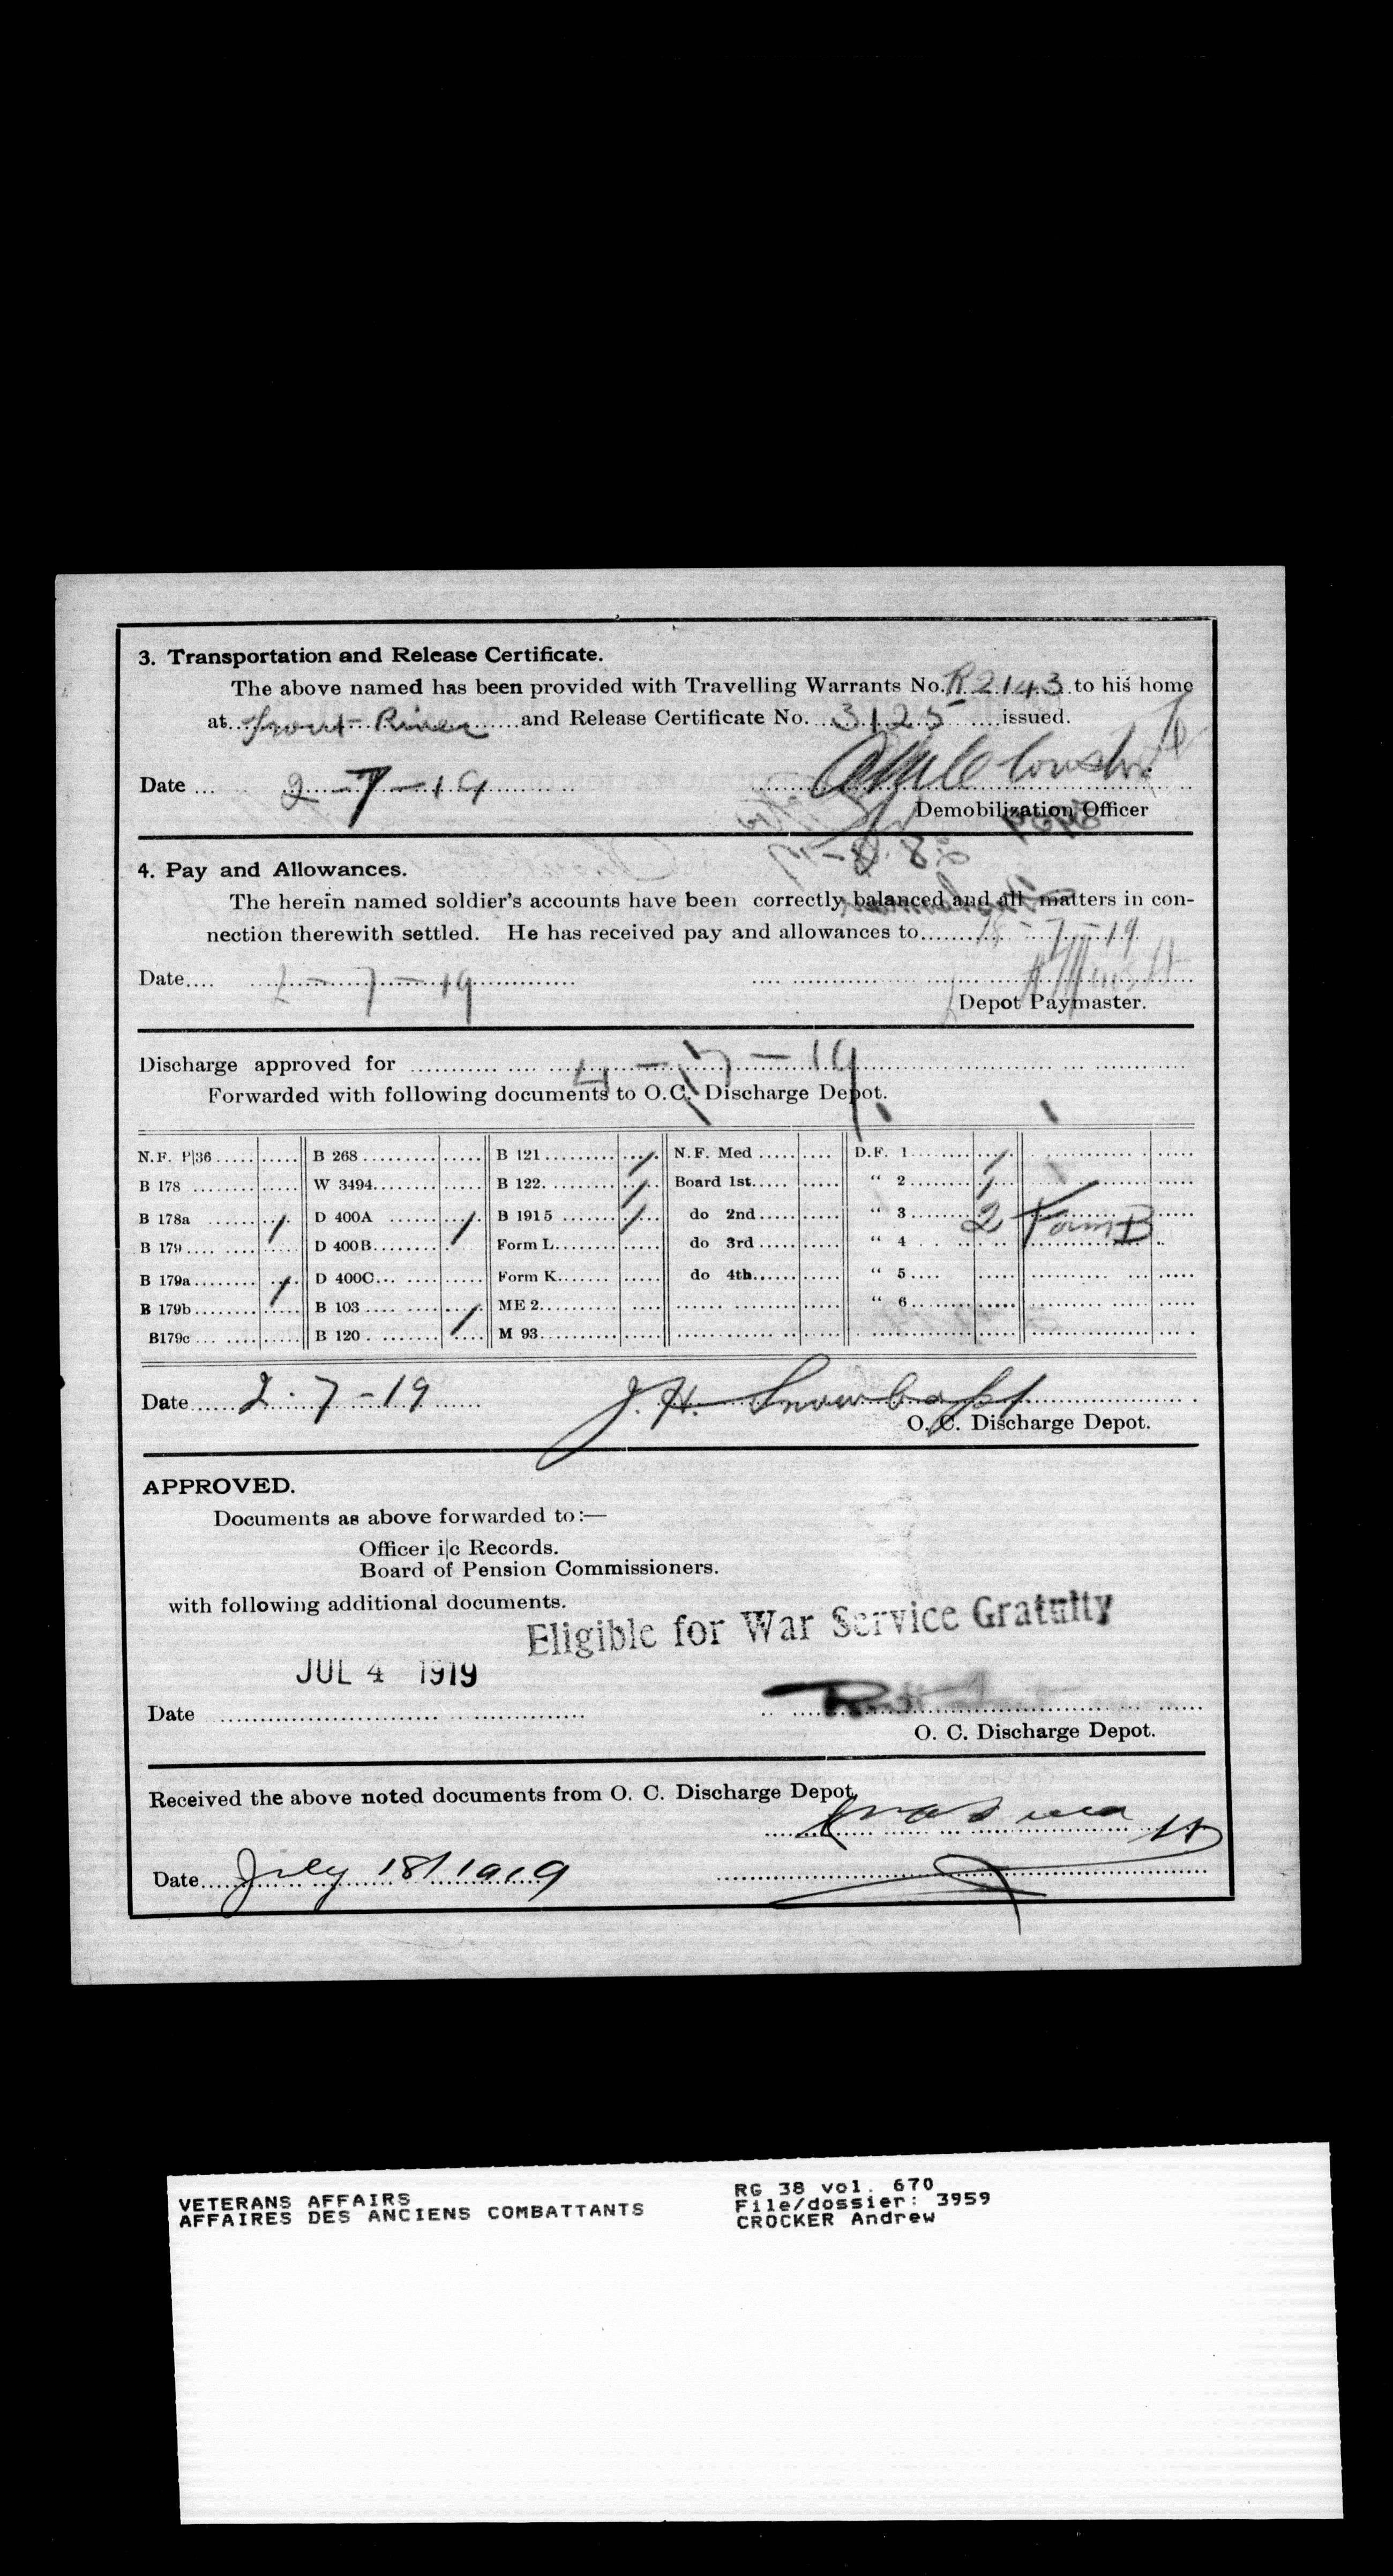 3. Transportation and Release Certificate.
The above named has been provided with Travelling Warrants No. R2143 to his home
at Trout River and Release Certificate No. 3125 issued.
Date 2-7-19
Demobilization Officer
4. Pay and Allowances.
The herein named soldier's accounts have been correctly balanced and all matters in con-
nection therewith settled. He has received pay and allowances to 18-7-19
Date 2-7-19
Depot Paymaster.
Discharge approved for 4-7-19
Forwarded with following documents to O.C. Discharge Depot.
N.F. P|36 B 268 B 121 / N.F. Med D.F. 1 /
B 178 W 3494 B 122. / Board 1st " 2 /
B 178a / D 400A / B 1915 / do 2nd " 3 2 Form B
B 179 D 400B Form L do 3rd " 4
B 179a / D 400C Form K do 4th " 5
B 179b B 103 / ME 2 " 6
B179c B 120 M 93
Date 2-7-19 J. H. Snow Capt
O. C. Discharge Depot.
APPROVED.
Documents as above forwarded to:—
Officer i|c Records.
Board of Pension Commissioners.
with following additional documents.
Eligible for War Service Gratuity
JUL 4 1919
Date
O. C. Discharge Depot.
Received the above noted documents from O. C. Discharge Depot.
Date July 18/1919
VETERANS AFFAIRS
AFFAIRES DES ANCIENS COMBATTANTS
RG 38 vol. 670
File/dossier: 3959
CROCKER Andrew